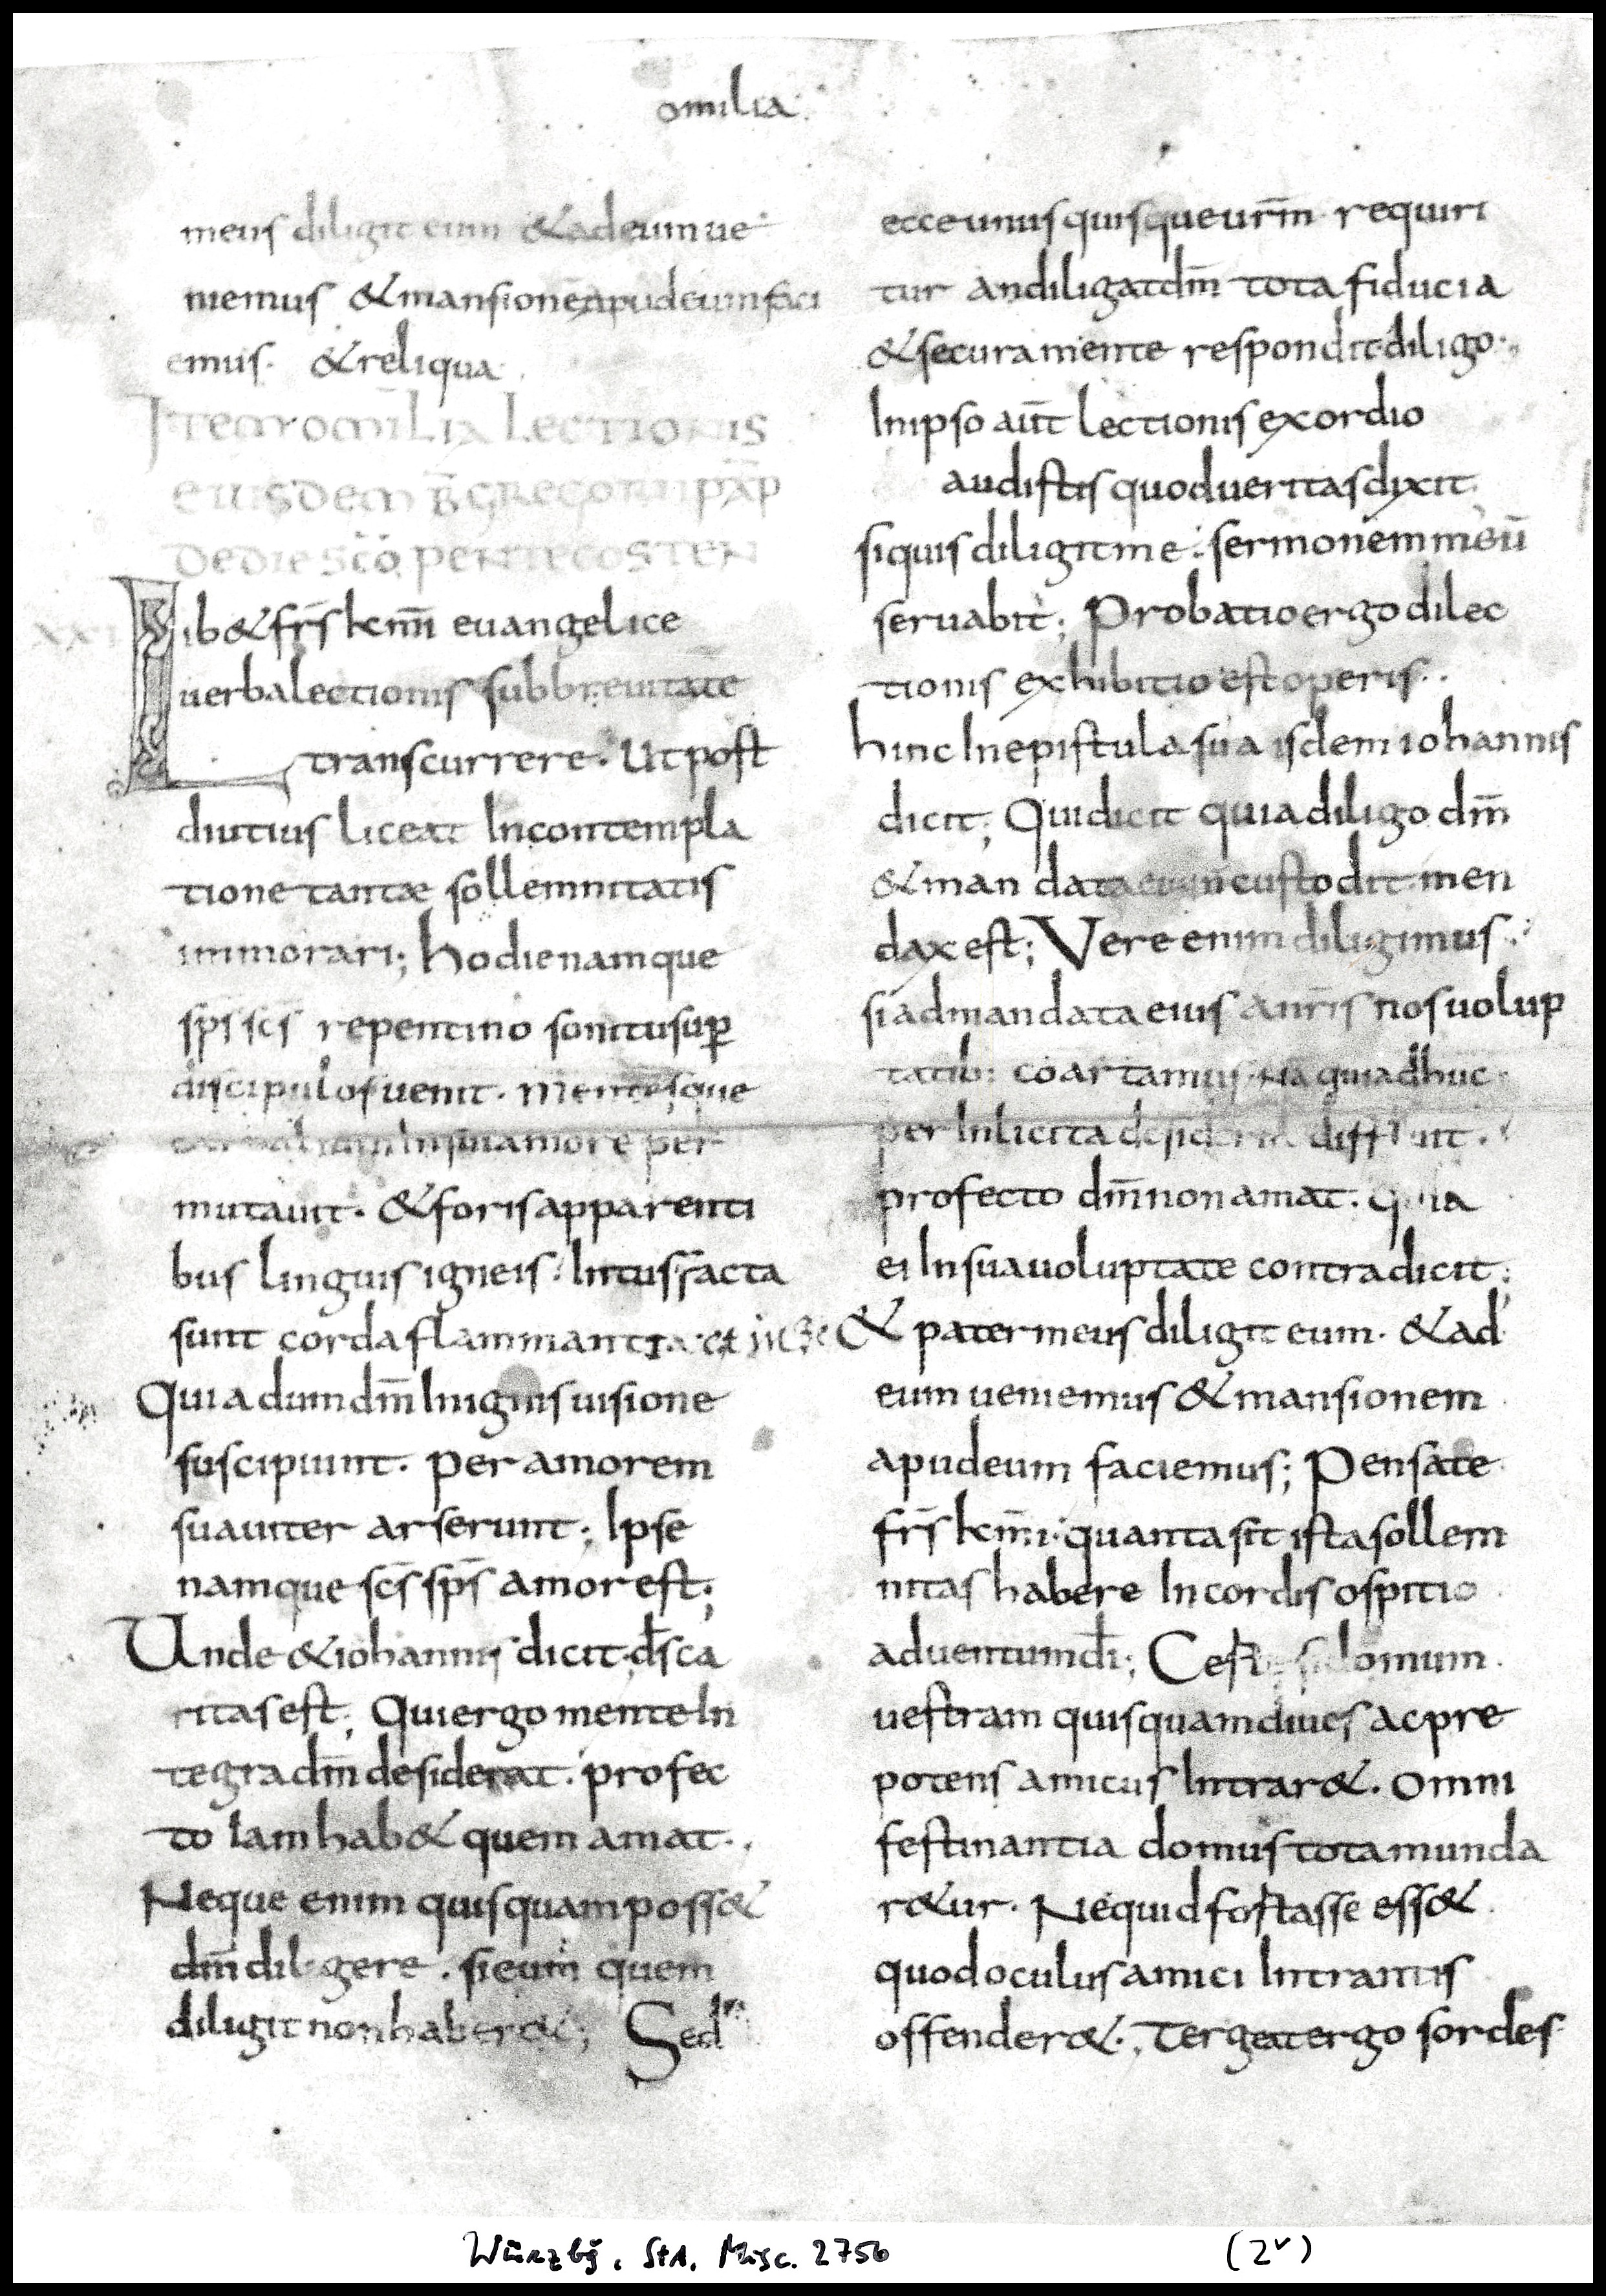 omilia
meus diligit eum & ad eum ue
niemus & mansionē apud eum faci
emus. & reliqua.
Item omilia lectionis
eiusdem b̄ gregorii pāp
de die sc̄o pentecosten
Lib& fr̄s km̄i euangelice
uerba lectionis sub breuitate
transcurrere. Ut post
diutius liceat In contempla
tione tantæ sollemnitatis
immorari; hodie namque
sp̄s sc̄s repentino sonitu sup̱
discipulos uenit. mentesque
In sui amore per
mutauit. & foris apparenti
bus linguis igneis. Intus facta
sunt corda flammantia
Quia dum dm̄ In ignis uisione
susciperunt. per amorem
suauiter arserunt; Ipse
namque sc̄s sp̄s amor est;
Unde & iohannis dicit. ds̄ ca
ritas est; Qui ergo mente In
tegra dm̄ desiderat. profec
to Iam hab& quem amat.
Neque enim quisquam poss&
dm̄ diligere. si eum quem
diligit non haber&; Sed
ecce unusquisque urm̄ requiri
tur an diligat dm̄ tota fiducia
& secura mente respondit. diligo.
In ipso aut̄ lectionis exordio
audistis quod ueritas dixit.
si quis diligit me. sermonem meū
seruabit; Probatio ergo dilec
tionis exhibitio est operis.
hinc In epistula sua isdem iohannis
dicit; Qui dicit quia diligo dm̄
& mandata eius n̄ custodit. men
dax est; Vere enim diligimus.
si ad mandata eius a nr̄is nos uolup
tatib: coartamus. Nā qui adhuc
per Inlicita desideria diffluit.
profecto dm̄ non amat. Quia
ei In sua uoluptate contradicit;
& pater meus diligit eum. & ad
eum ueniemus & mansionem
apud eum faciemus; Pensate
fr̄s km̄i. quanta sit ista sollem
nitas habere In cordis ospitio
aduentum dī; Certe si domum
uestram quisquam diues ac pre
potens amicus Intrar&. omni
festinantia domus tota munda
r&ur. Ne quid fortasse ess&
quod oculus amici Intrantis
offender&. Tergeat ergo sordes
Würzbg, StA, Misc. 2756
(2v)